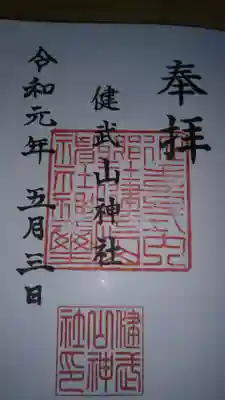 奉拝
健武山神社
令和元年 五月三日
健武
山神
社印